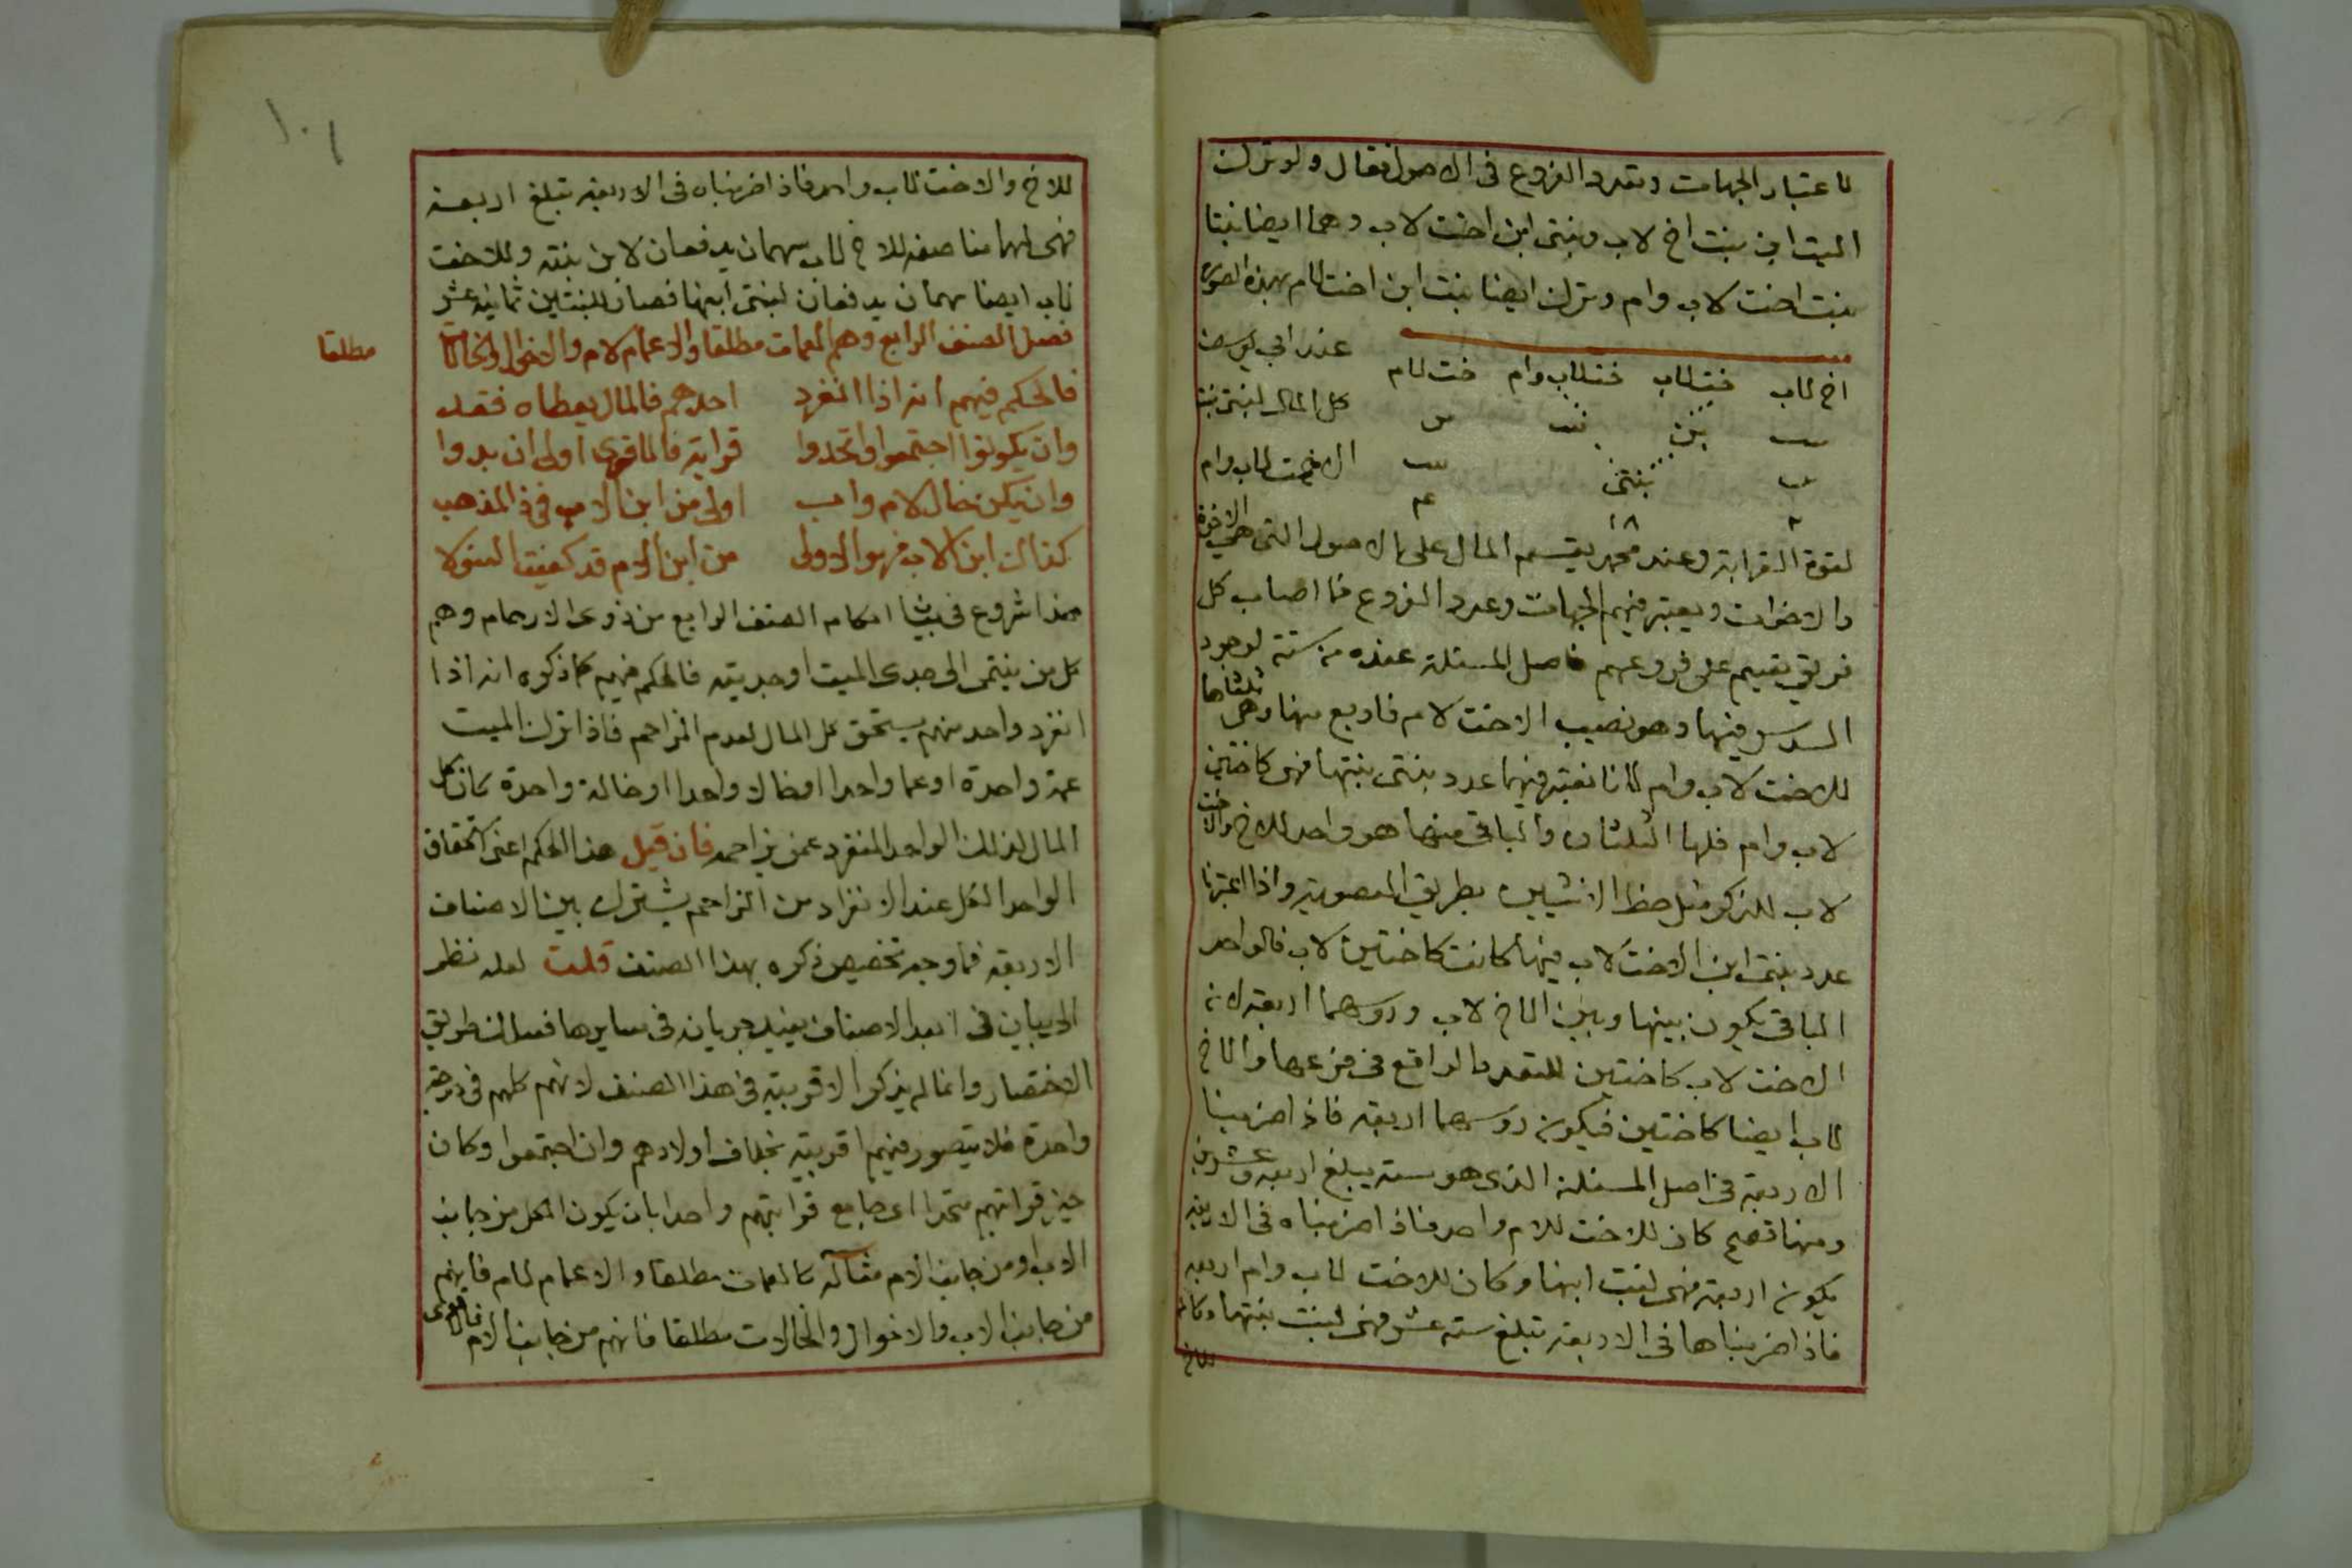 لاعتبار الجهات وتعدد الفروع فى الاصول فقال ولو ترك
الميت ابن بنت اخ لاب وبنتى ابن اخت لاب وهما ايضا بنتا
بنت اخت لاب وام وترك ايضا بنت ابن اخت لام بهذه الصورة
عند ابي يوسف
اخ لاب خت لاب خت لاب وام خت لام
كل المال لبنتى بنت
بنت بن بنت بن
الاخت لاب وام
بن بنتى بنت
٢ ١٨ ٤
لقوة القرابة وعند محمد يقسم المال على الاصول التى هى الاخوة
والاخوات ويعتبر فيهم الجهات وعدد الفروع فما اصاب كل
فريق يقسم على فروعهم فاصل المسئلة عنده من ستة لوجود
السدس فيها وهو نصيب الاخت لام فاربع منها وهى ثلثاها
للاخت لاب وام لانا نعتبر فيها عدد بنتى بنتها فهى كاختين
لاب وام فلها الثلثان والباقى منها هو واحد للاخ والاخت
لاب للذكر مثل حظ الانثيين بطريق العصوبة واذا اعتبرنا
عدد بنتى ابن الاخت لاب فيها كانت كاختين لاب فالواحد
الباقى يكون بينها وبين الاخ لاب وروسهما اربعة لان
الاخت لاب كاختين للتعدد الواقع فى فرعها والاخ
لاب ايضا كاختين فيكون روسهما اربعة فاذا ضربنا
الاربعة فى اصل المسئلة الذى هو ستة يبلغ اربعة وعشرين
ومنها تصح كان للاخت للام واحد فاذا ضربناه فى الاربعة
يكون اربعة فهى لبنت ابنها وكان للاخت لاب وام اربعة
فاذا ضربناها فى الاربعة تبلغ ستة عشر فهى لبنت بنتها وكان
للاخ
١٠١
للاخ والاخت لاب واحد فاذا ضربناه فى الاربعة تبلغ اربعة
فهى لهما مناصفة للاخ لاب سهمان يدفعان لابن بنته وللاخت
لاب ايضا سهمان يدفعان لبنتى ابنها فصار للبنتين ثمانية عشر
فصل الصنف الرابع وهم العمات مطلقا والاعمام لام والاخوال والخالات
مطلقا
فالحكم فيهم انه اذا انفرد احدهم فالمال يعطاه فقد
وان يكونوا اجتمعوا واتحدوا قرابة فالاقوى اولى ان بدوا
وان يكن خال لام واب اولى من ابن الاب فى ذا المذهب
كذاك ابن لاب فهو الاولى من ابن لام قد كفيت العولا
هذا شروع فى بيان احكام الصنف الرابع من ذوى الارحام وهم
كل من ينتمى الى جدى الميت او جدتيه فالحكم فيهم كما ذكره انه اذا
انفرد واحد منهم يستحق كل المال لعدم المزاحم فاذا ترك الميت
عمة واحدة او عما واحدا او خالا واحدا او خالة واحدة كان كل
المال لذلك الواحد المنفرد عمن يزاحمه فان قيل هذا الحكم اعنى استحقاق
الواحد الكل عند الانفراد من المزاحم يشترك بين الاصناف
الاربعة فما وجه تخصيص ذكره بهذا الصنف قلت لعله نظر
الى بيان فى ابعد الاصناف يفيد جريانه فى سايرها فسلك طريق
الاختصار وانما لم يذكر الاقربية فى هذا الصنف لانهم كلهم فى درجة
واحدة فلا يتصور فيهم اقربية بخلاف اولادهم وان اجتمعوا وكان
حيز قرابتهم متحدا اى جامع قرابتهم واحدا بان يكون الكل من جانب
الاب او من جانب الام مثاله كالعمات مطلقا والاعمام لام فانهم
من جانب الاب والاخوال والخالات مطلقا فانهم من جانب الام فالاقوى